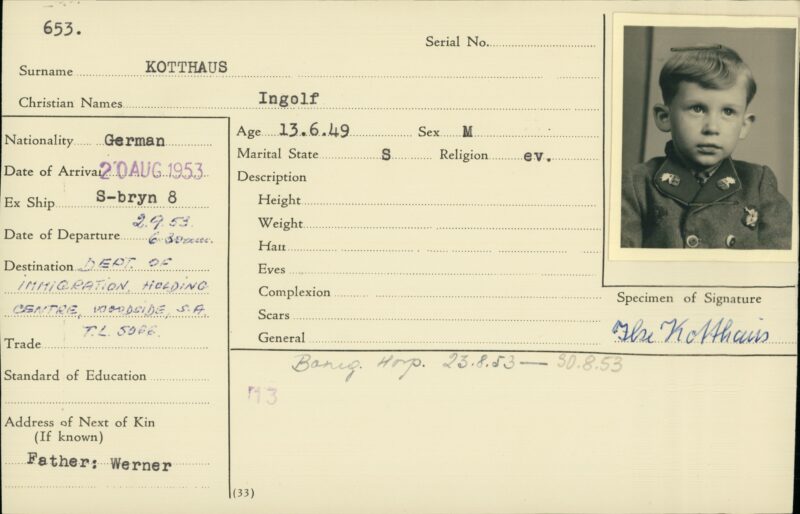 653.
Serial No.
Surname KOTTHAUS
Christian Names Ingolf
Nationality German
Date of Arrival 20 AUG 1953
Ex Ship S-bryn 8
Date of Departure 2.9.53. 6.30am.
Destination DEPT. OF
IMMIGRATION, HOLDING
CENTRE, WOODSIDE, S.A.
T.L. 5966.
Trade
Standard of Education
Address of Next of Kin
(If known)
Father: Werner
Age 13.6.49 Sex M
Marital State S Religion ev.
Description
Height
Weight
Hair
Eyes
Complexion
Scars
General
Specimen of Signature
Ilse Kotthaus
Boneg. Hosp. 23.8.53 — 30.8.53
(33)